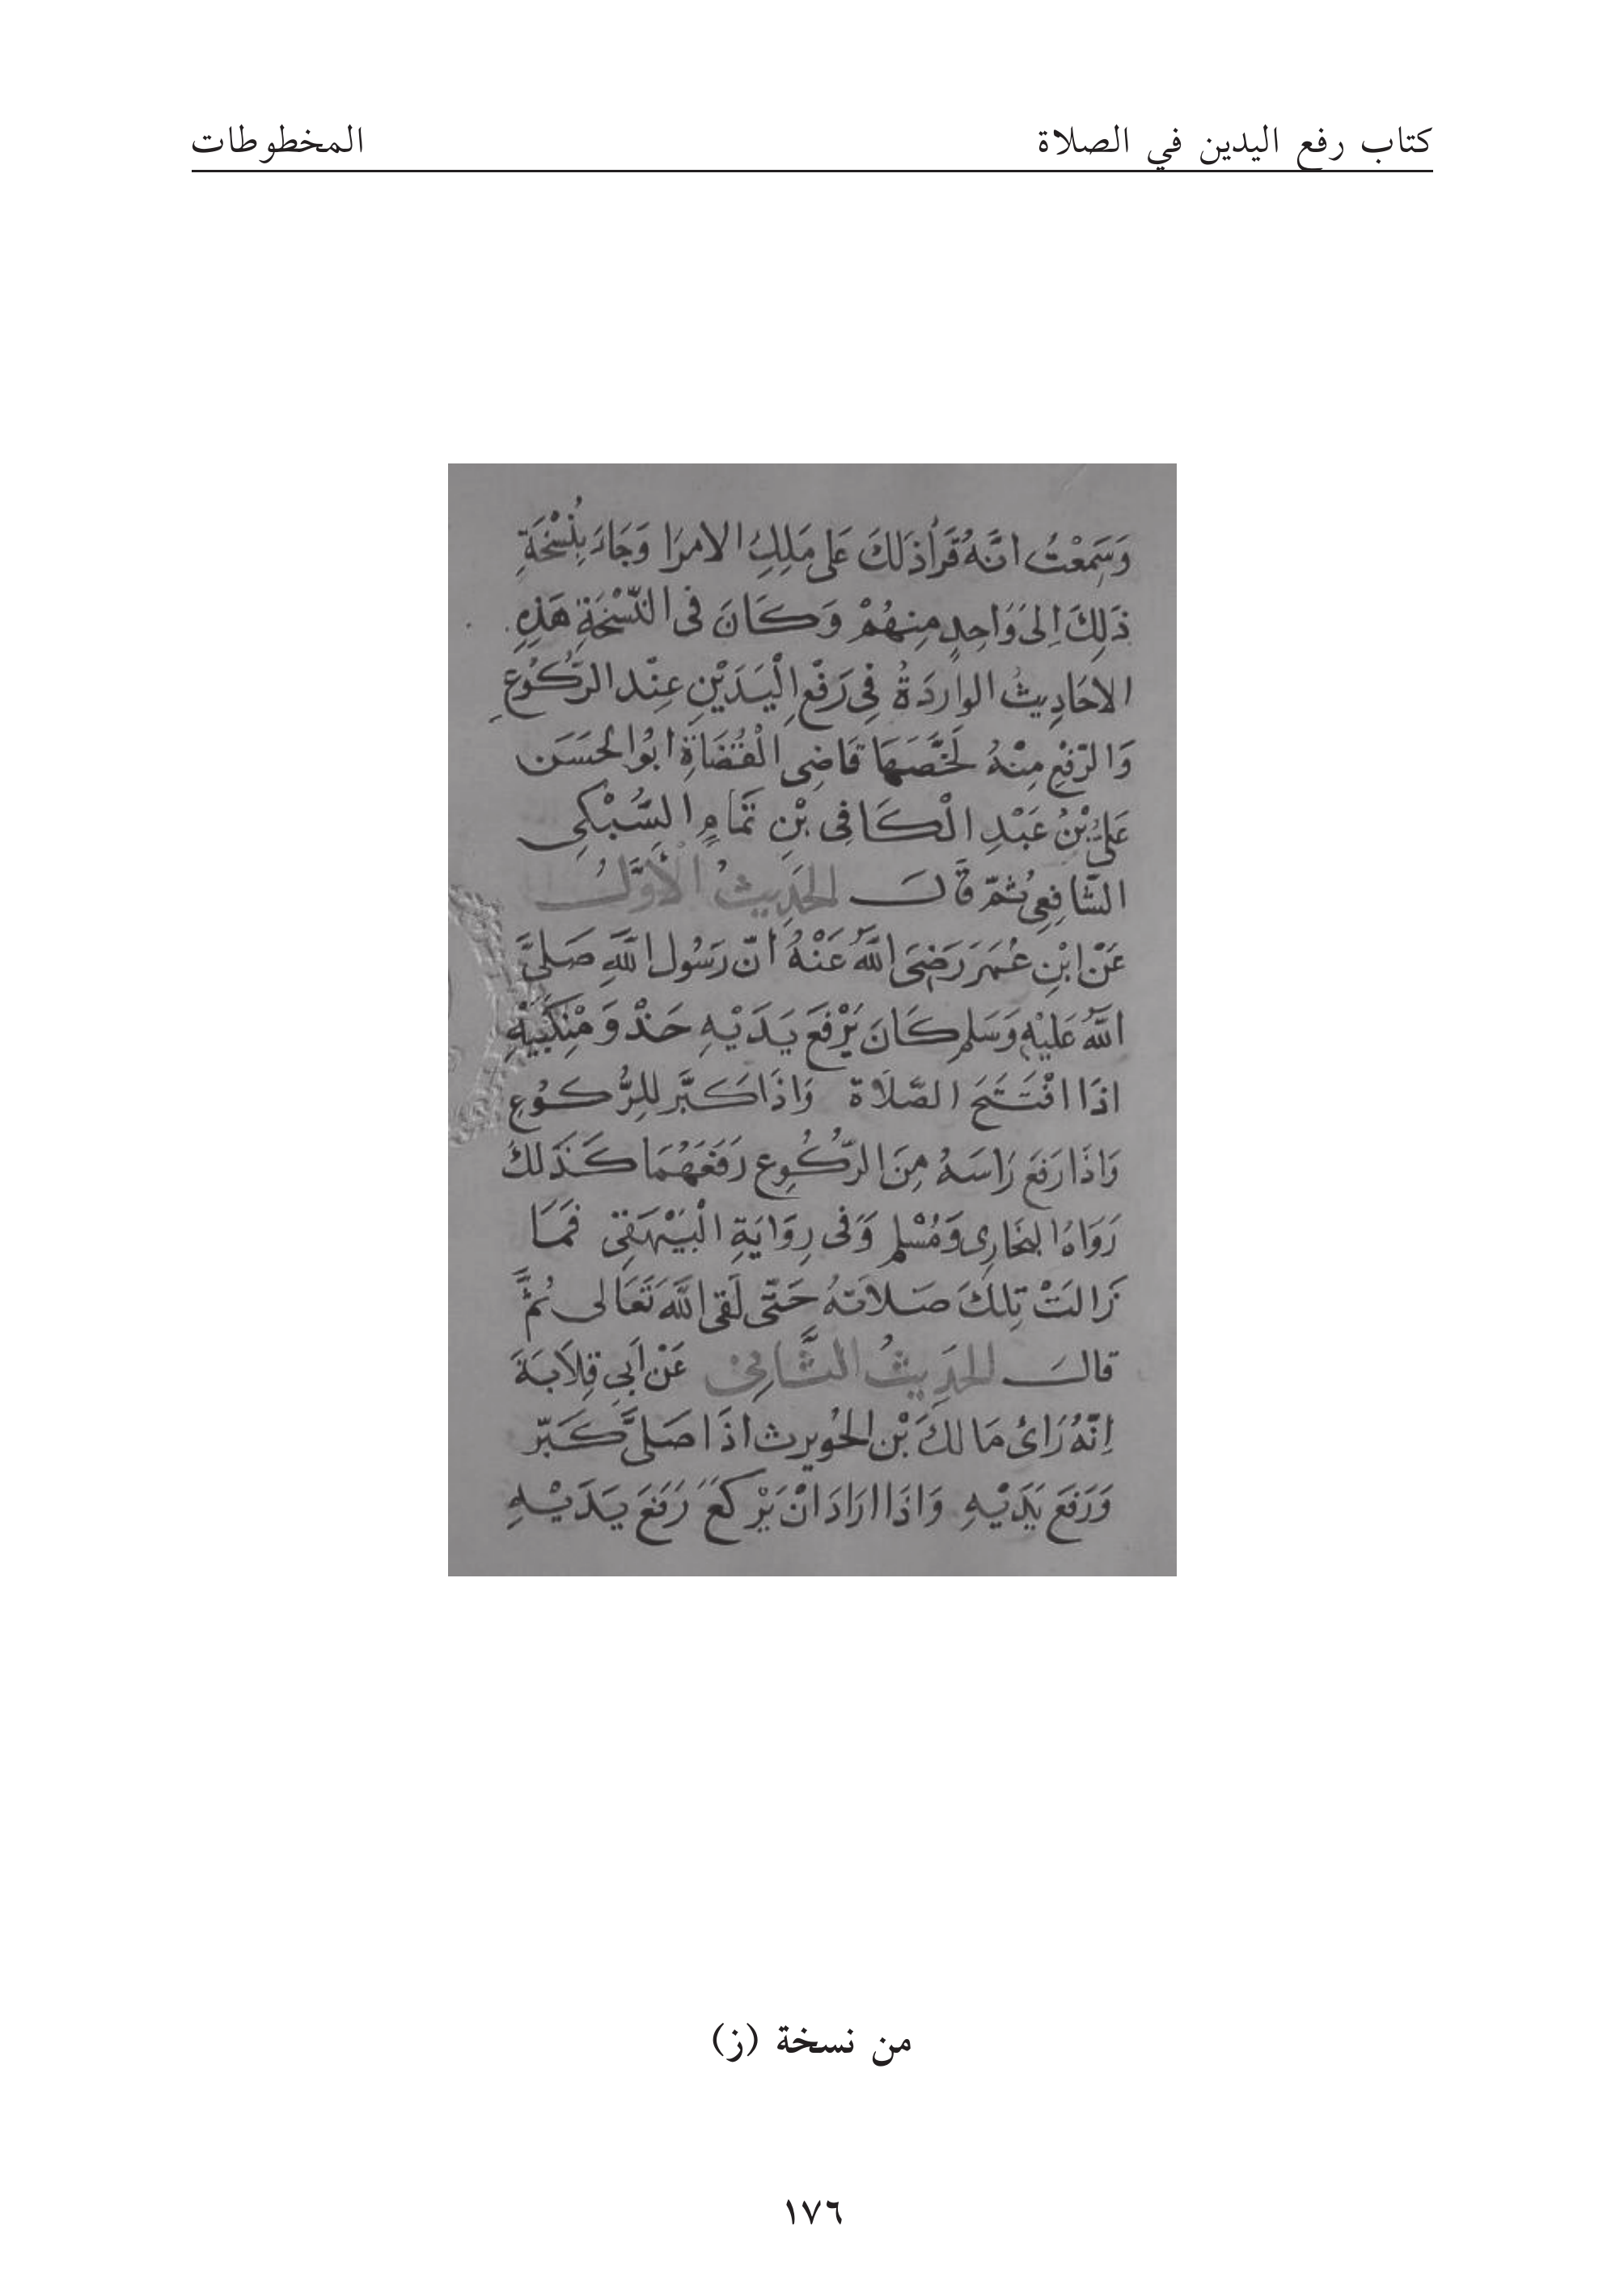 كتاب رفع اليدين في الصلاة المخطوطات
وَسَمِعْتُ انَّهُ قَرَأ ذَلكَ عَلى مَلِكِ الامرَا وَجَاءَ بِنُسْخَةِ
ذَلِكَ اِلىَ وَاحِدٍ مِنهُمْ وَكَانَ فى النّسْخَةِ هَذِهِ
الاحَادِيثُ الوارِدَةُ فِى رَفْعِ الْيَدَيْنِ عِنْد الرُّكُوعِ
وَالرّفْعِ مِنْهُ لَخَّصَهَا قَاضِى الْقُضَاةِ ابُو الحَسَن
عَلىُّ بْنُ عَبْدِ الْكَافِى بْنِ تَمَّامٍ السُّبْكِى
الشَّافِعِى ثُمّ قَالَ الحَدِيثُ الْأَوَّلُ
عَنْ ابْنِ عُمَرَ رَضِىَ اللَّهُ عَنْهُ انّ رَسُول اللَّهِ صَلىَّ
اللَّهُ عَليْهِ وَسَلم كَانَ يَرْفَعَ يَدَيْهِ حَذْوَ مْنِكَبَيْهِ
اذَا افْتَتَحَ الصَّلَاة وَاذَا كَبَّر لِلرُّكُوعِ
وَاذَا رَفَعَ رَاسَهُ مِنَ الرُّكُوعِ رَفَعَهُمَا كَذَلكَ
رَوَاهُ البخَارِى وَمُسْلم وَفى رِوَايَةِ الْبَيْهَقِى فَمَا
زَالَتْ تِلكَ صَلاَتهُ حَتّى لَقى اللَّهَ تَعَالى ثُمَّ
قالَ الحَدِيثُ الثَّانِى عَنْ اَبِى قِلَابَةَ
اِنّهُ رَاىُ مَالكَ بْن الحُويرث اذَا صَلىَّ كَبّر
وَرَفَعَ يَدَيْهِ وَاذَا ارَادَ انْ يَرْكَعَ رَفَعَ يَدَيْهِ
من نسخة (ز)
١٧٦